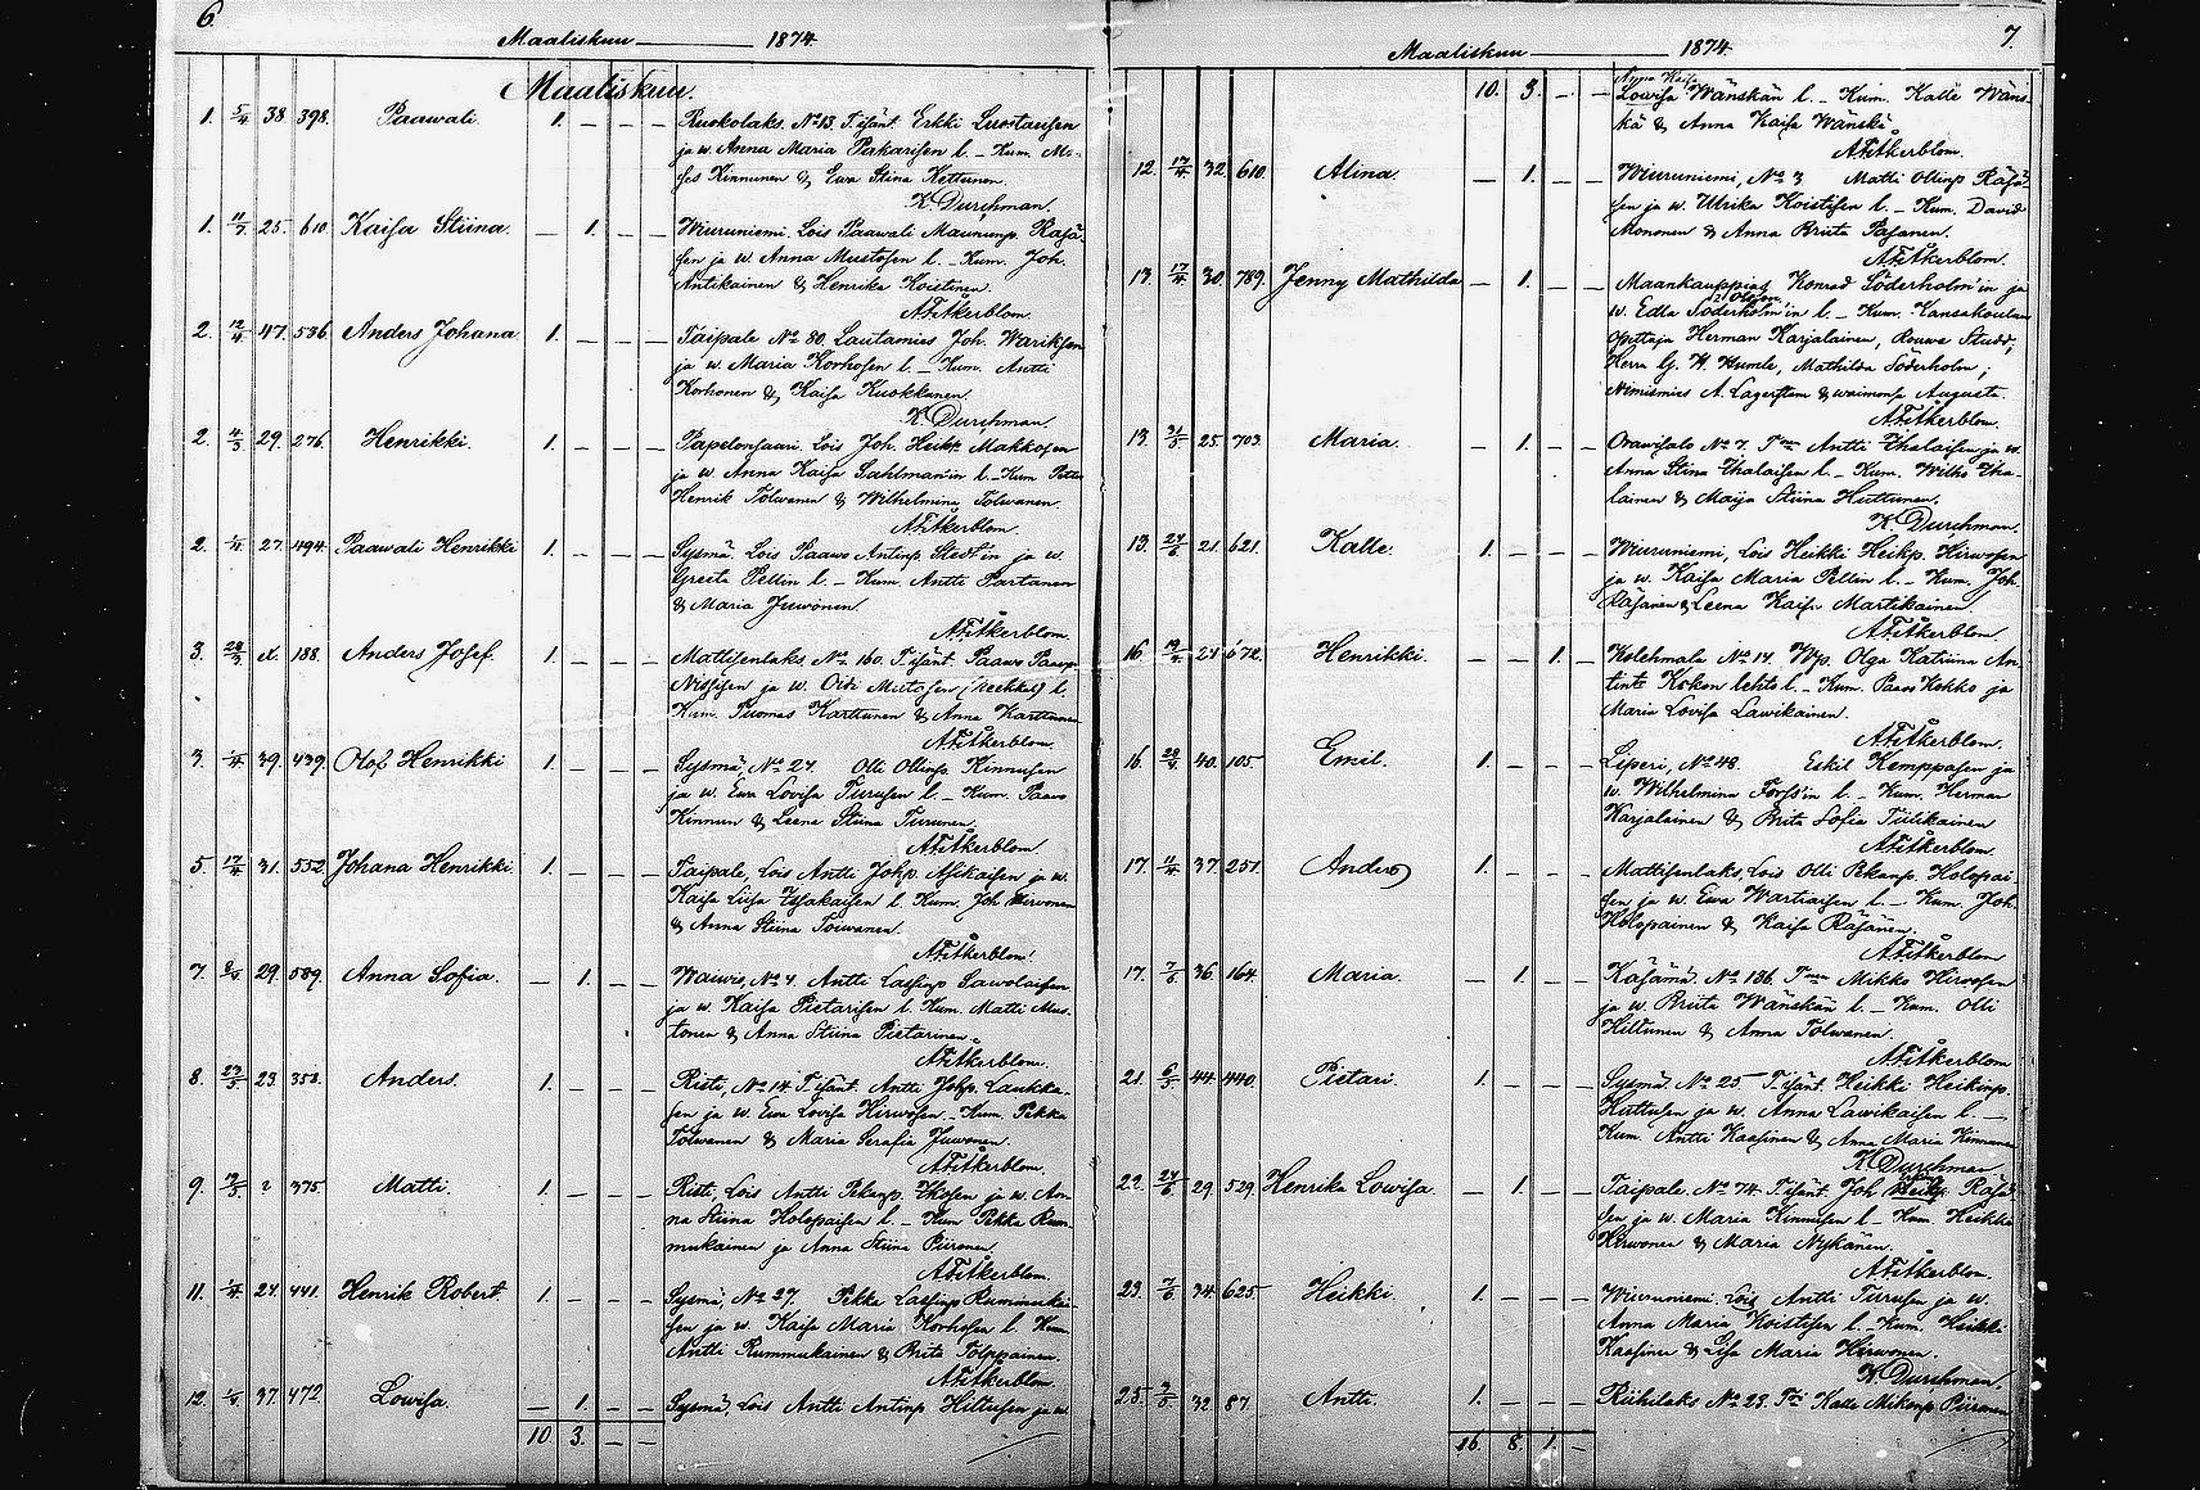 6.
Maaliskuu 1874.
Maaliskuu.
1. 5/4 38. 398. Paawali. 1. — — — Ruokolaks. No 13. T. isänt. Erkki Luostarisen
ja w. Anna Maria Pakarisen l. — Kum. Mo-
ses Kinnunen & Ewa Stina Kettunen.
K. Durchman.
1. 11/7 25. 610. Kaisa Stiina. — 1. — — Wiuruniemi. Lois Paawali Maununp. Räsä-
sen ja w. Anna Mustosen l. — Kum. Joh.
Antikainen & Henrika Koistinen.
A.F. Åkerblom.
2. 12/4 47. 536. Anders Johana. 1. — — — Taipale No 80. Lautamies Joh. Wariksen
ja w. Maria Korhosen l. — Kum. Antti
Korhonen & Kaisa Kuokkanen.
K. Durchman.
2. 4/3 29. 276. Henrikki. 1. — — — Papelonsaari. Lois Joh. Heikp. Makkosen
ja w. Anna Kaisa Sahlman'in l. — Kum. Petter
Henrik Tolwanen & Wilhelmina Tolwanen.
A.F. Åkerblom.
2. 27. 494. Paawali Henrikki 1. — — — Sysmä. Lois Paawo Antinp. Stedt'in ja w.
Greeta Pellin l. — Kum. Antti Partanen
& Maria Juwonen.
A.F. Åkerblom.
3. 28/3 188. Anders Josef. 1. — — — Mattisenlaks. No 160. T. isänt. Paawo Paawp.
Nissisen ja w. Mustosen l.
Kum. Tuomas Karttunen & Anna Karttunen
A.F. Åkerblom.
3. 39. 439. Olof Henrikki 1. — — — Sysmä, No 27. Olli Ollinp. Kinnusen
ja w. Ewa Lovisa Turusen l. — Kum. Paawo
Kinnun & Leena Stiina Turunen.
A.F. Åkerblom.
5. 17/4 31. 552. Johana Henrikki. 1. — — — Taipale, Lois Antti Johp. Asikaisen ja w.
Kaisa Liisa l. Kum. Joh Hirwonen
& Anna Stiina Toiwanen.
A.F. Åkerblom.
7. 29. 589. Anna Sofia. — 1. — — No 4. Antti Lassinp Sawolaisen
ja w. Kaisa Pietarisen l. Kum. Matti Mus-
tonen & Anna Stiina Pietarinen.
A.F. Åkerblom.
8. 23/5 23. 353. Anders. 1. — — — Risti, No 14. T. isänt. Antti Johp. Laukka-
sen ja w. Ewa Lovisa Hirwosen. — Kum. Pekka
Tolwanen & Maria Serafia Juwonen.
A.F. Åkerblom.
9. ? 375. Matti. 1. — — — Risti, Lois Antti Pekanp. Ihosen ja w. An-
na Stiina Holopaisen l. — Kum Pekka Rum-
mukainen ja Anna Stiina Piironen.
A.F. Åkerblom.
11. 24. 441. Henrik Robert. 1. — — — Sysmä, No 27. Pekka Lassinp Rummukai-
sen ja w. Kaisa Maria Korhosen l. Kum.
Antti Rummukainen & Brita Tolppainen.
A.F. Åkerblom.
12. 37. 472. Lowisa. — 1. — — Sysmä, Lois Antti Antinp Hiltusen ja w.
10 3. — —
7.
Maaliskuu 1874.
Anna Kaisa
10. 3. — — Lowisa Wänskän l. — Kum. Kalle Wäns-
kä & Anna Kaisa Wänskä.
A.F. Åkerblom.
12. 17/4 32. 610. Alina. — 1. — — Wiuruniemi, No 3 Matti Ollinp Räsä-
sen ja w. Ulrika Koistisen l. — Kum. David
Mononen & Anna Briita Pasanen.
A.F. Åkerblom.
13. 17/4 30. 789. Jenny Mathilda — 1. — — Maankauppias Konrad Söderholm'in ja
w. Edla Söderholm'in l. — Kum. Kansakoulun
opettaja Herman Karjalainen, Rouwa Studd,
Herra G. W. Humle, Mathilda Söderholm;
Nimismies A. Lagerstam & waimonsa Augusta.
A.F. Åkerblom.
13. 31/5 25. 703. Maria. — 1. — — Orawisalo No 7. Antti Ihalaisen ja w.
Anna Stina Ihalaisen l. — Kum. Wilho Iha-
lainen & Maija Stiina Huttunen.
K. Durchman.
13. 24/6 21. 621. Kalle. 1. — — — Wiuruniemi, Lois Heikki Heikp. Hirwosen
ja w. Kaisa Maria Pellin l. — Kum. Joh.
Räsänen & Leena Kaisa Martikainen.
A.F. Åkerblom.
16 19/4 24 672. Henrikki. — — 1. — Kolehmala No 14. Wp. Olga Katriina An-
tint. Kokon lehto l. — Kum. Paavo Kokko ja
Maria Lovisa Lawikainen.
A.F. Åkerblom.
16. 40. 105. Emil. 1. — — — Liperi, No 48. Eskil Kemppasen ja
w. Wilhelmina Forss'in l. — Kum. Herman
Karjalainen & Brita Sofia Tiilikainen
A.F. Åkerblom.
17. 11/4 37. 251. Anders 1. — — — Mattisenlaks, Lois Olli Pekanp. Holopai-
sen ja w. Ewa Wartiaisen l. — Kum. Joh.
Holopainen & Kaisa Räsänen.
A.F. Åkerblom
17. 7/6 36. 164. Maria. — 1. — — Käsämä. No 136. Mikko Hirwosen
ja w. Briita Wänskän l. — Kum. Olli
Hiltunen & Anna Tolwanen.
A.F. Åkerblom
21. 6/5 44. 440. Pietari. 1. — — — Sysmä. No 25 T. isänt. Heikki Heikinp.
Huttusen ja w. Anna Lawikaisen l. —
Kum. Antti Kaasinen & Anna Maria Kinnunen
K. Durchman
22. 24/6 29. 529. Henrika Lowisa. — 1. — — Taipale. No 74. T. isänt. Joh Räsä-
sen ja w. Maria Kinnusen l — Kum. Heikki
Hirwonen & Maria Nykänen.
A.F. Åkerblom.
23. 7/6 34. 625. Heikki. 1. — — — Wiuruniemi. Lois Antti Turusen ja w.
Anna Maria Koistisen l. — Kum. Heikki
Kaasinen & Lisa Maria Hirwonen.
K. Durchman.
25. 32. 87. Antti. 1. — — — Riihilaks No 23. Kalle Mikonp Piironen
16. 8. 1. —